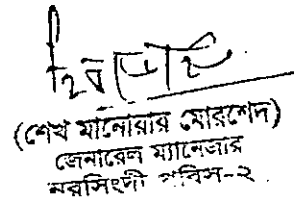 (শেখ মানোয়ার মোরশেদ)
জেনারেল ম্যানেজার
নরসিংদী পবিস-২